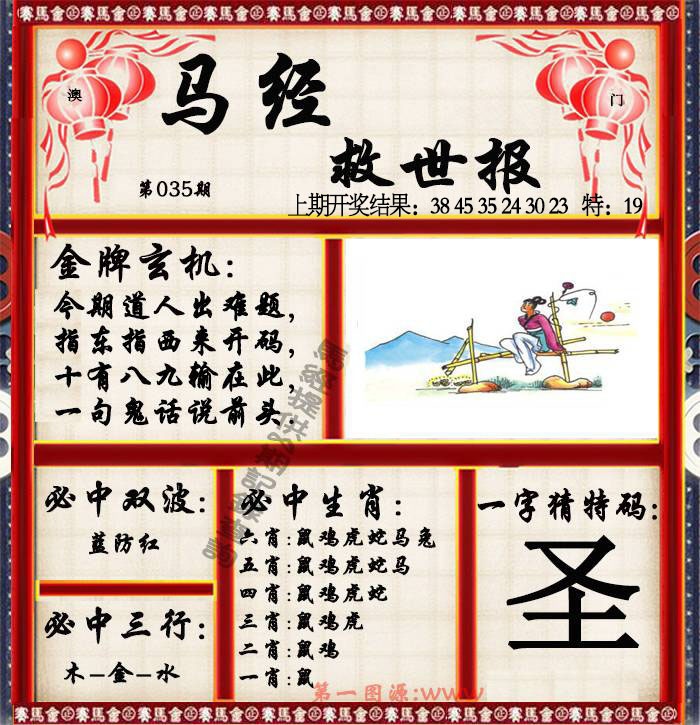 賽馬會 賽馬會 賽馬會 賽馬會 賽馬會 賽馬會 賽馬會 賽馬會 賽馬會
澳
门
马经
救世报
第035期
上期开奖结果：38 45 35 24 30 23 特：19
金牌玄机：
今期道人出难题，
指东指西来开码，
十有八九输在此，
一句鬼话说前头.
必中双波：
蓝防红
必中三行：
木–金–水
必中生肖：
六肖:鼠鸡虎蛇马兔
五肖:鼠鸡虎蛇马
四肖:鼠鸡虎蛇
三肖:鼠鸡虎
二肖:鼠鸡
一肖:鼠
一字猜特码：
圣
第一图源:www